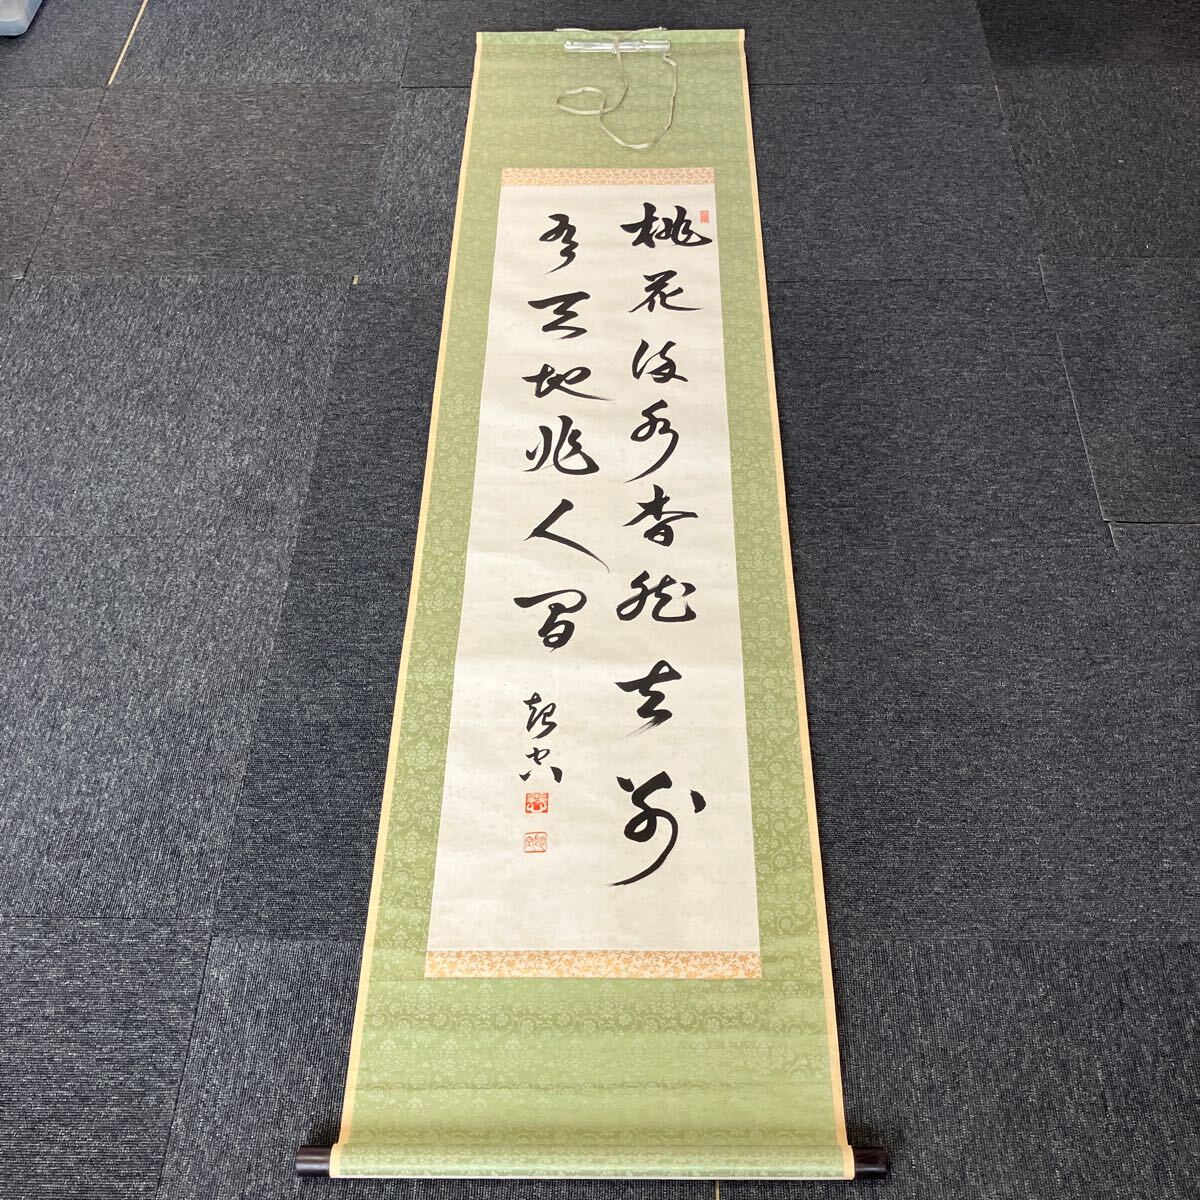 桃花流水杳然去別
有天地非人間